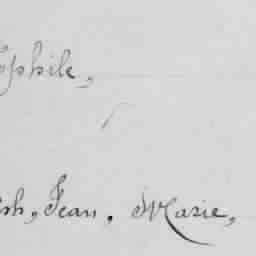 ophile,
ph, Jean, Marie,